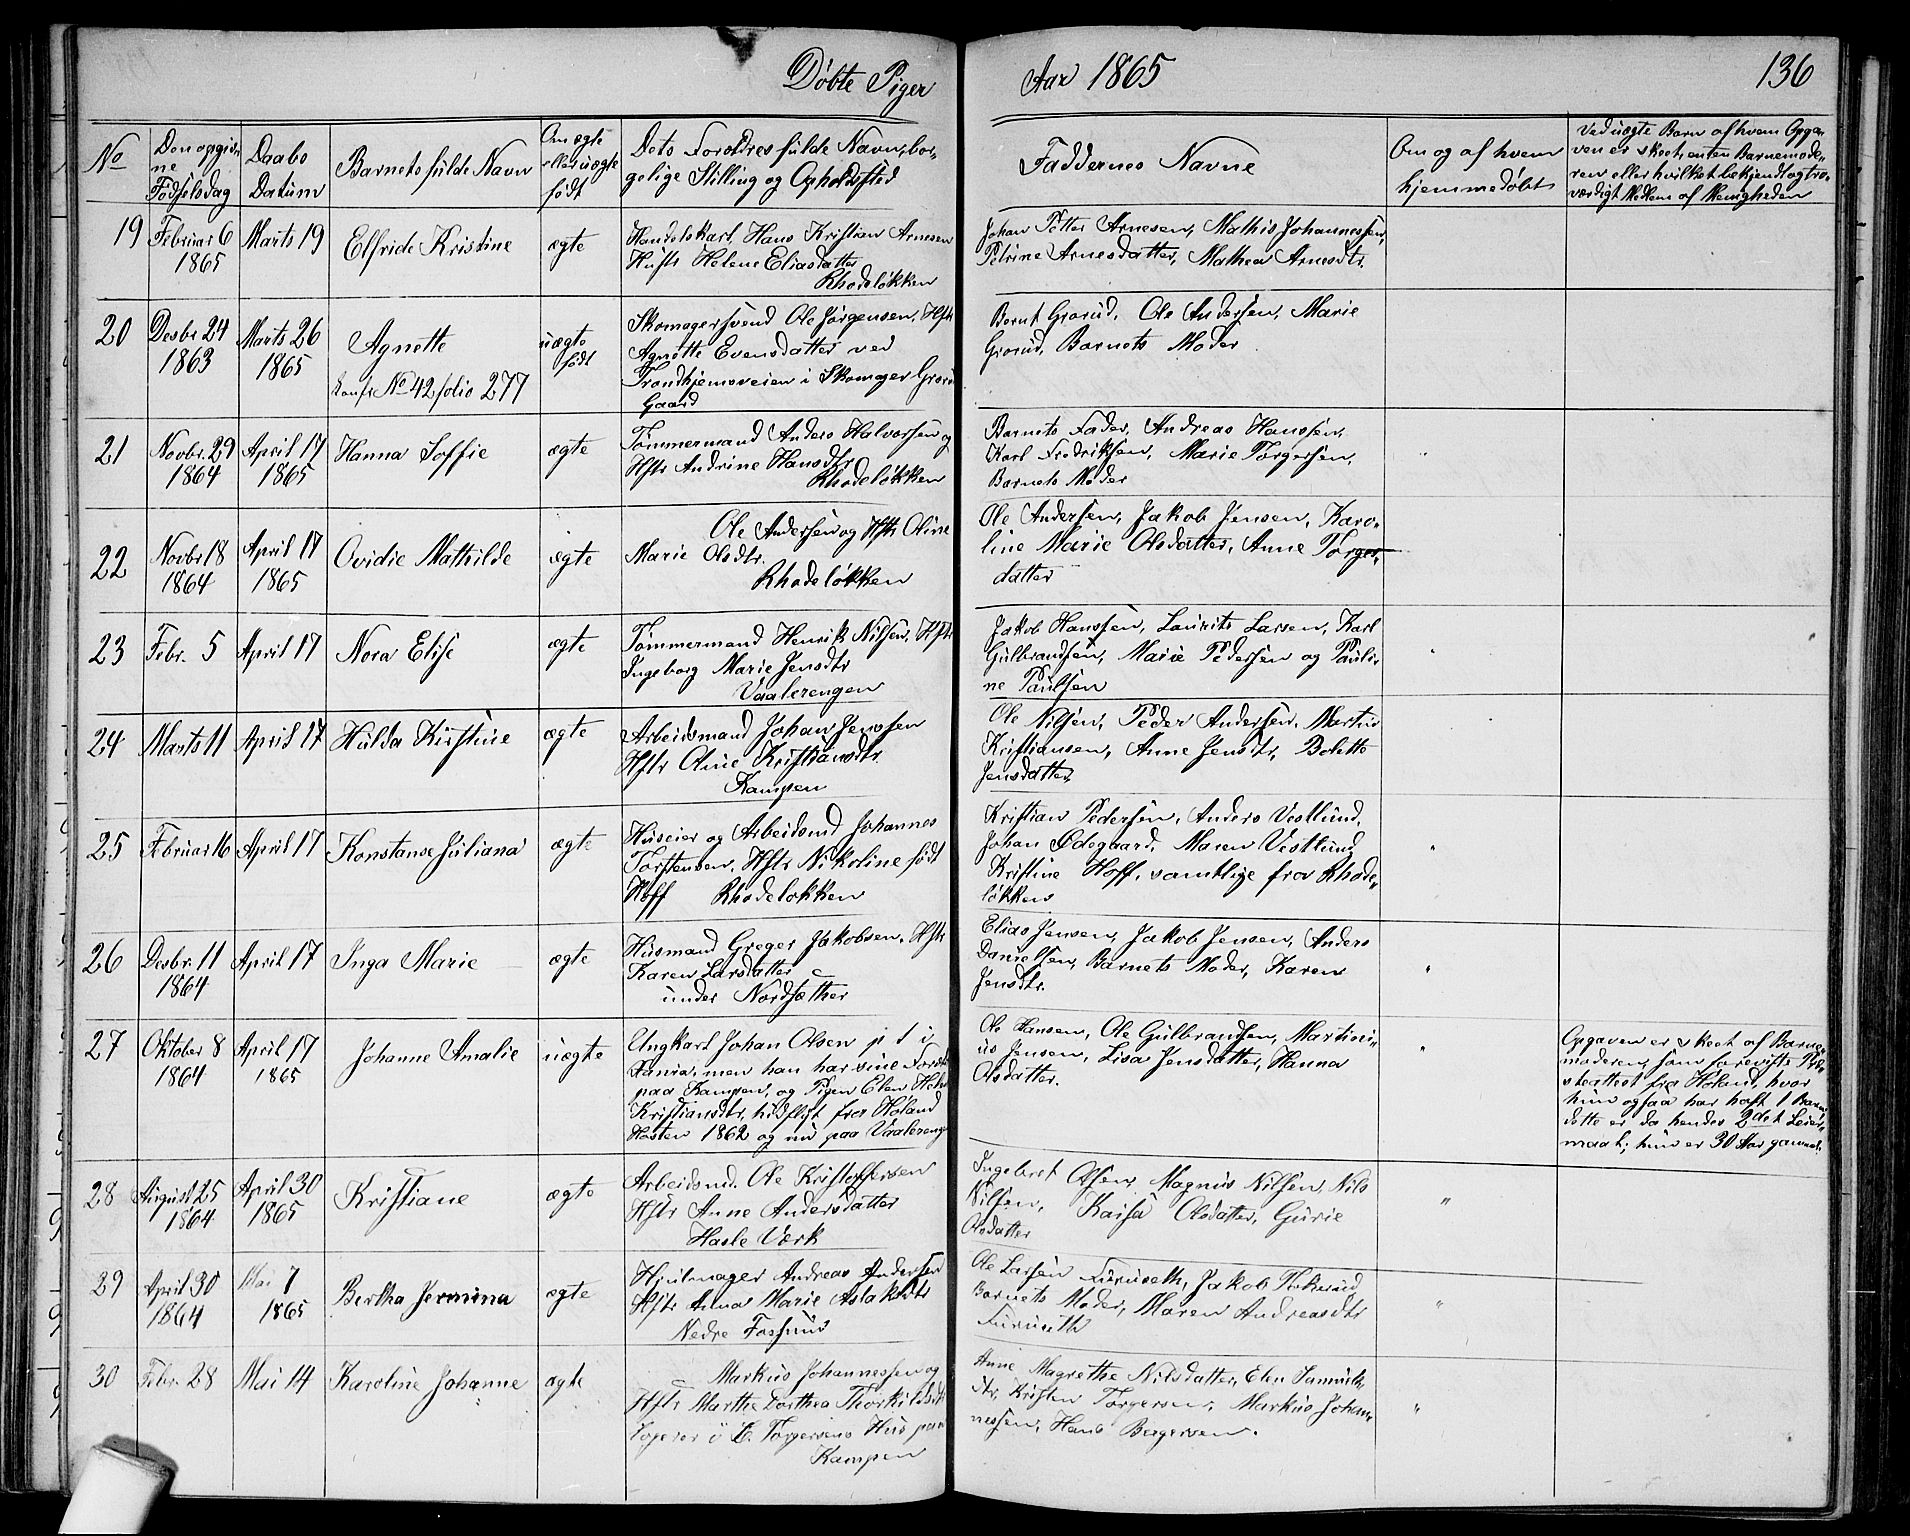 Døbte Piger
Aar 1865
136
No
Den opgiv-
ne
Fødselsdag
Daabs
Datum
Barnets fulde Navn
Om ægte
eller uægte
født
Dets Forældres fulde Navn, bor-
gelige Stilling og Opholdssted
Faddernes Navne
Om og af hvem
hjemmedøbt
Ved uægte Barn af hvem Opga-
ven er skeet, enten Barnemode-
ren eller hvilket bekjendt og tro-
værdigt Medlem af Menigheden
19
Februar 6
1865
Marts 19
Elfride Kristine
ægte
Handelskarl Hans Kristian Arnesen
Hustr Helene Eliasdatter
Rhodeløkken
Johan Petter Arnesen, Mathis Johannessen,
Petrine Arnesdatter, Mathea Arnesdtr.
20
Desbr 24
1863
Marts 26
1865
Agnette
Konfr No 42 folio 277
uægte
født
Skomagersvend Ole Jørgensen, Hstr
Agnette Evensdatter ved
Trondhjemsveien i Skomager Grorud
Gaard
Bernt Grorud, Ole Andersen, Marie
Grorud, Barnets Moder
21
Novbr. 29
1864
April 17
1865
Hanna Soffie
ægte
Tømmermand Anders Halvorsen og
Hstr Andrine Hansdtr
Rhodeløkken
Barnets Fader, Andreas Hanssen,
Karl Fredriksen, Marie Torgersen,
Barnets Moder
"
22
Novbr 18
1864
April 17
1865
Ovidie Mathilde
ægte
Ole Andersen og Hstr Oline
Marie Olsdtr.
Rhodeløkken
Ole Andersen, Jakob Jensen, Karo-
line Marie Olsdatter, Anne Torger-
datter
23
Febr. 5
April 17
Nora Elise
ægte
Tømmermand Henrik Nilsen, Hstr
Ingeborg Marie Jensdtr
Vaalerengen
Jakob Hanssen, Laurits Larsen, Karl
Gulbrandsen, Marie Pedersen og Pauli-
ne Paulsen
"
24
Marts 11
April 17
Hulda Kirstine
ægte
Arbeidsmand Johan Jenssen
Hstr Oline Kristiansdtr.
Kampen
Ole Nilsen, Peder Andersen, Martin
Kristiansen, Anne Jensdtr, Bolette
Jensdatter
25
Februar 16
April 17
Konstanse Juliana
ægte
Huseier og Arbeidsmd Johannes
Torstensen, Hstr Nikoline født
Hoff Rhodeløkken
Kristian Pedersen, Anders Vestlund,
Johan Ødegaard, Maren Vestlund
Kristine Hoff, samtlige fra Rhode-
løkken
"
26
Desbr. 11
1864
April 17
Inga Marie
ægte
Husmand Greger Jakobsen, Hstr
Karen Larsdatter
under Nordsæther
Elias Jensen, Jakob Jensen, Anders
Danielsen, Barnets Moder, Karen
Jensdtr.
"
27
Oktober 8
1864
April 17
1865
Johanne Amalie
uægte
Ungkarl Johan Olsen p t i
men han har sine
paa Kampen, og Pigen Elen
Kristiansdtr, hidflyt fra Høland
Høsten 1862 og nu paa Vaalereng
Ole Hansen, Ole Gulbrandsen, Martini-
us Jensen, Lisa Jensdatter, Hanna
Olsdatter.
"
Opgaven er skeet af Barne-
moderen, som foreviste
fra Høland, hvor
hun ogsaa har haft 1 Barn
dette er da hendes 2det Leier-
maal; hun er 30 Aar gammel
28
August 25
1864
April 30
1865
Kristiane
ægte
Arbeidsmd. Ole Kristoffersen
Hstr Anne Andersdatter
Hasle Værk
Ingebret Olsen, Magnus Nilsen, Nils
Nilsen, Kaisa Olsdatter, Gurie
Olsdatter
"
29
April 30
1864
Mai 7
1865
Bertha Jermina
ægte
Hjulmager Andreas Andersen
Hstr Anna Marie Aslaksdtr
Nedre Fossum
Ole Larsen Furuseth, Jakob
Barnets Moder, Maren Andreasdtr
Furuseth
"
30
Febr. 28
Mai 14
Karoline Johanne
ægte
Markus Johannessen og
Hstr Marthe Dorthea Thorkildsdtr
Logerer i E. Torgersens Hus paa
Kampen
Anne Magrethe Nilsdatter, Elen Samuels-
dtr, Kristen Torgersen, Markus Johan-
nessen, Hans Bergersen.
"